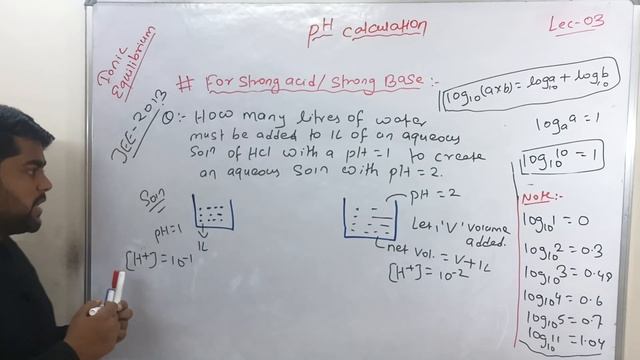 pH calculation
Lec-03
Ionic
Equilibrium
# For Strong acid/Strong Base:-
JEE-2013
Q:- How many litres of water
must be added to 1L of an aqueous
Soln of HCl with a pH=1 to create
an aqueous Soln with pH=2.
Soln
pH=1
1L
[H+]=10-1
pH=2
Let, 'V' volume
added.
net vol. = V+1L
[H+]=10-2
log10(axb)=log10a+log10b
logaa=1
log1010=1
Note:-
log101=0
log102=0.3
log103=0.48
log104=0.6
log105=0.7
log1011=1.04